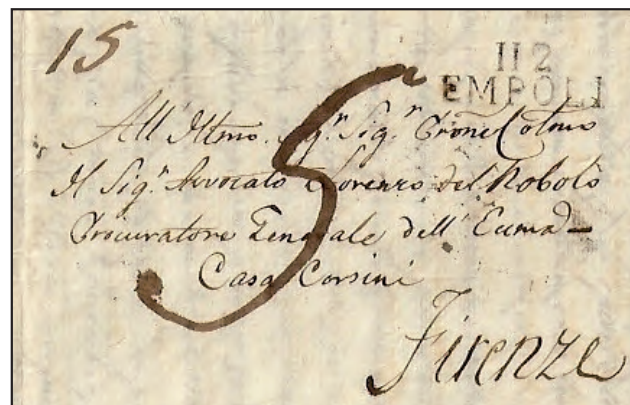 15
112
EMPOLI
5
All' Illmo. Sigr. Sigr. Prone Colmo
Il Sigr. Avvocato Lorenzo del Nobolo
Procuratore Generale dell'
Casa Corsini
Firenze